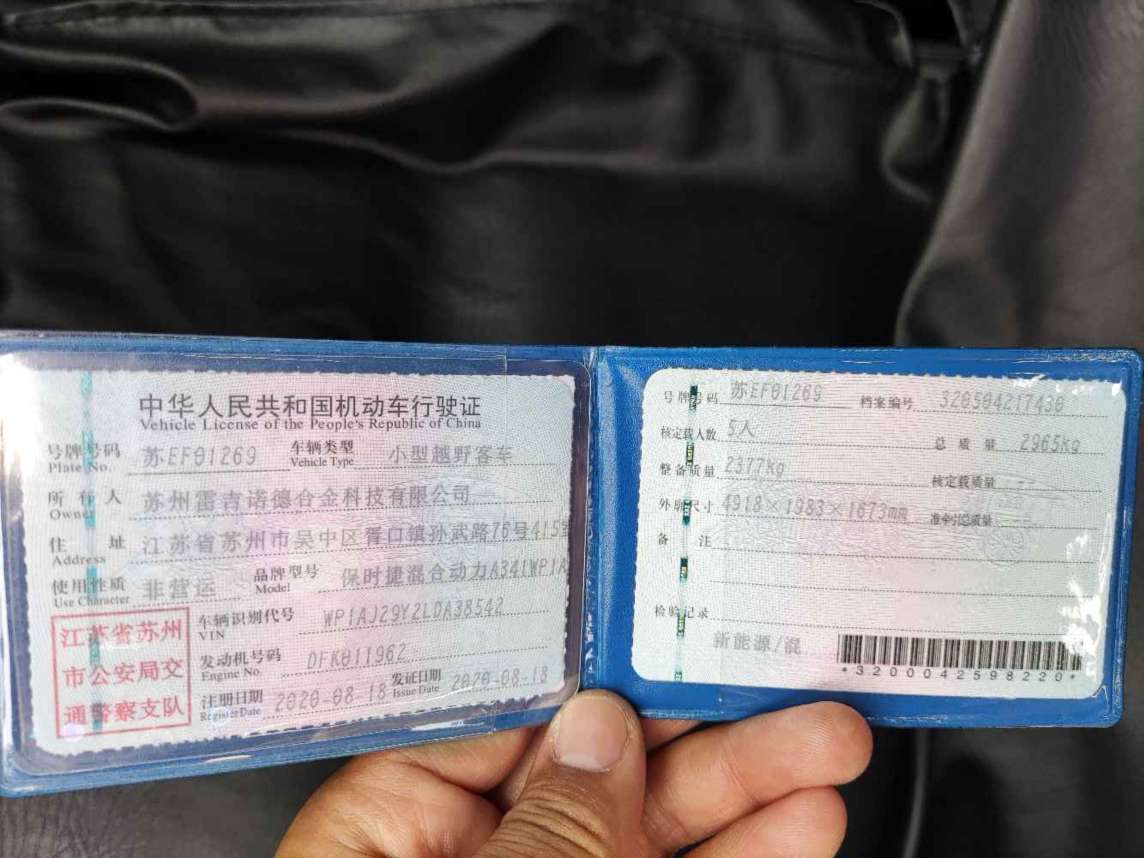 中华人民共和国机动车行驶证
Vehicle License of the People's Republic of China
号牌号码 苏EF01269 车辆类型 小型越野客车
Plate No. Vehicle Type
所有人 苏州雷吉诺德合金科技有限公司
Owner
住址 江苏省苏州市吴中区胥口镇孙武路76号415室
Address
使用性质 非营运 品牌型号 保时捷混合动力A341WP1A
Use Character Model
江苏省苏州
市公安局交
通警察支队
车辆识别代号 WP1AJ29Y2LDA38542
VIN
发动机号码 DFK011962
Engine No.
注册日期 2020-08-18 发证日期 2020-08-18
Register Date Issue Date
号牌号码 苏EF01269 档案编号 320504217430
核定载人数 5人 总质量 2965kg
整备质量 2377kg 核定载质量 --
外廓尺寸 4918×1983×1673mm 准牵引总质量 --
备注
检验记录
新能源/混
*3200042598220*